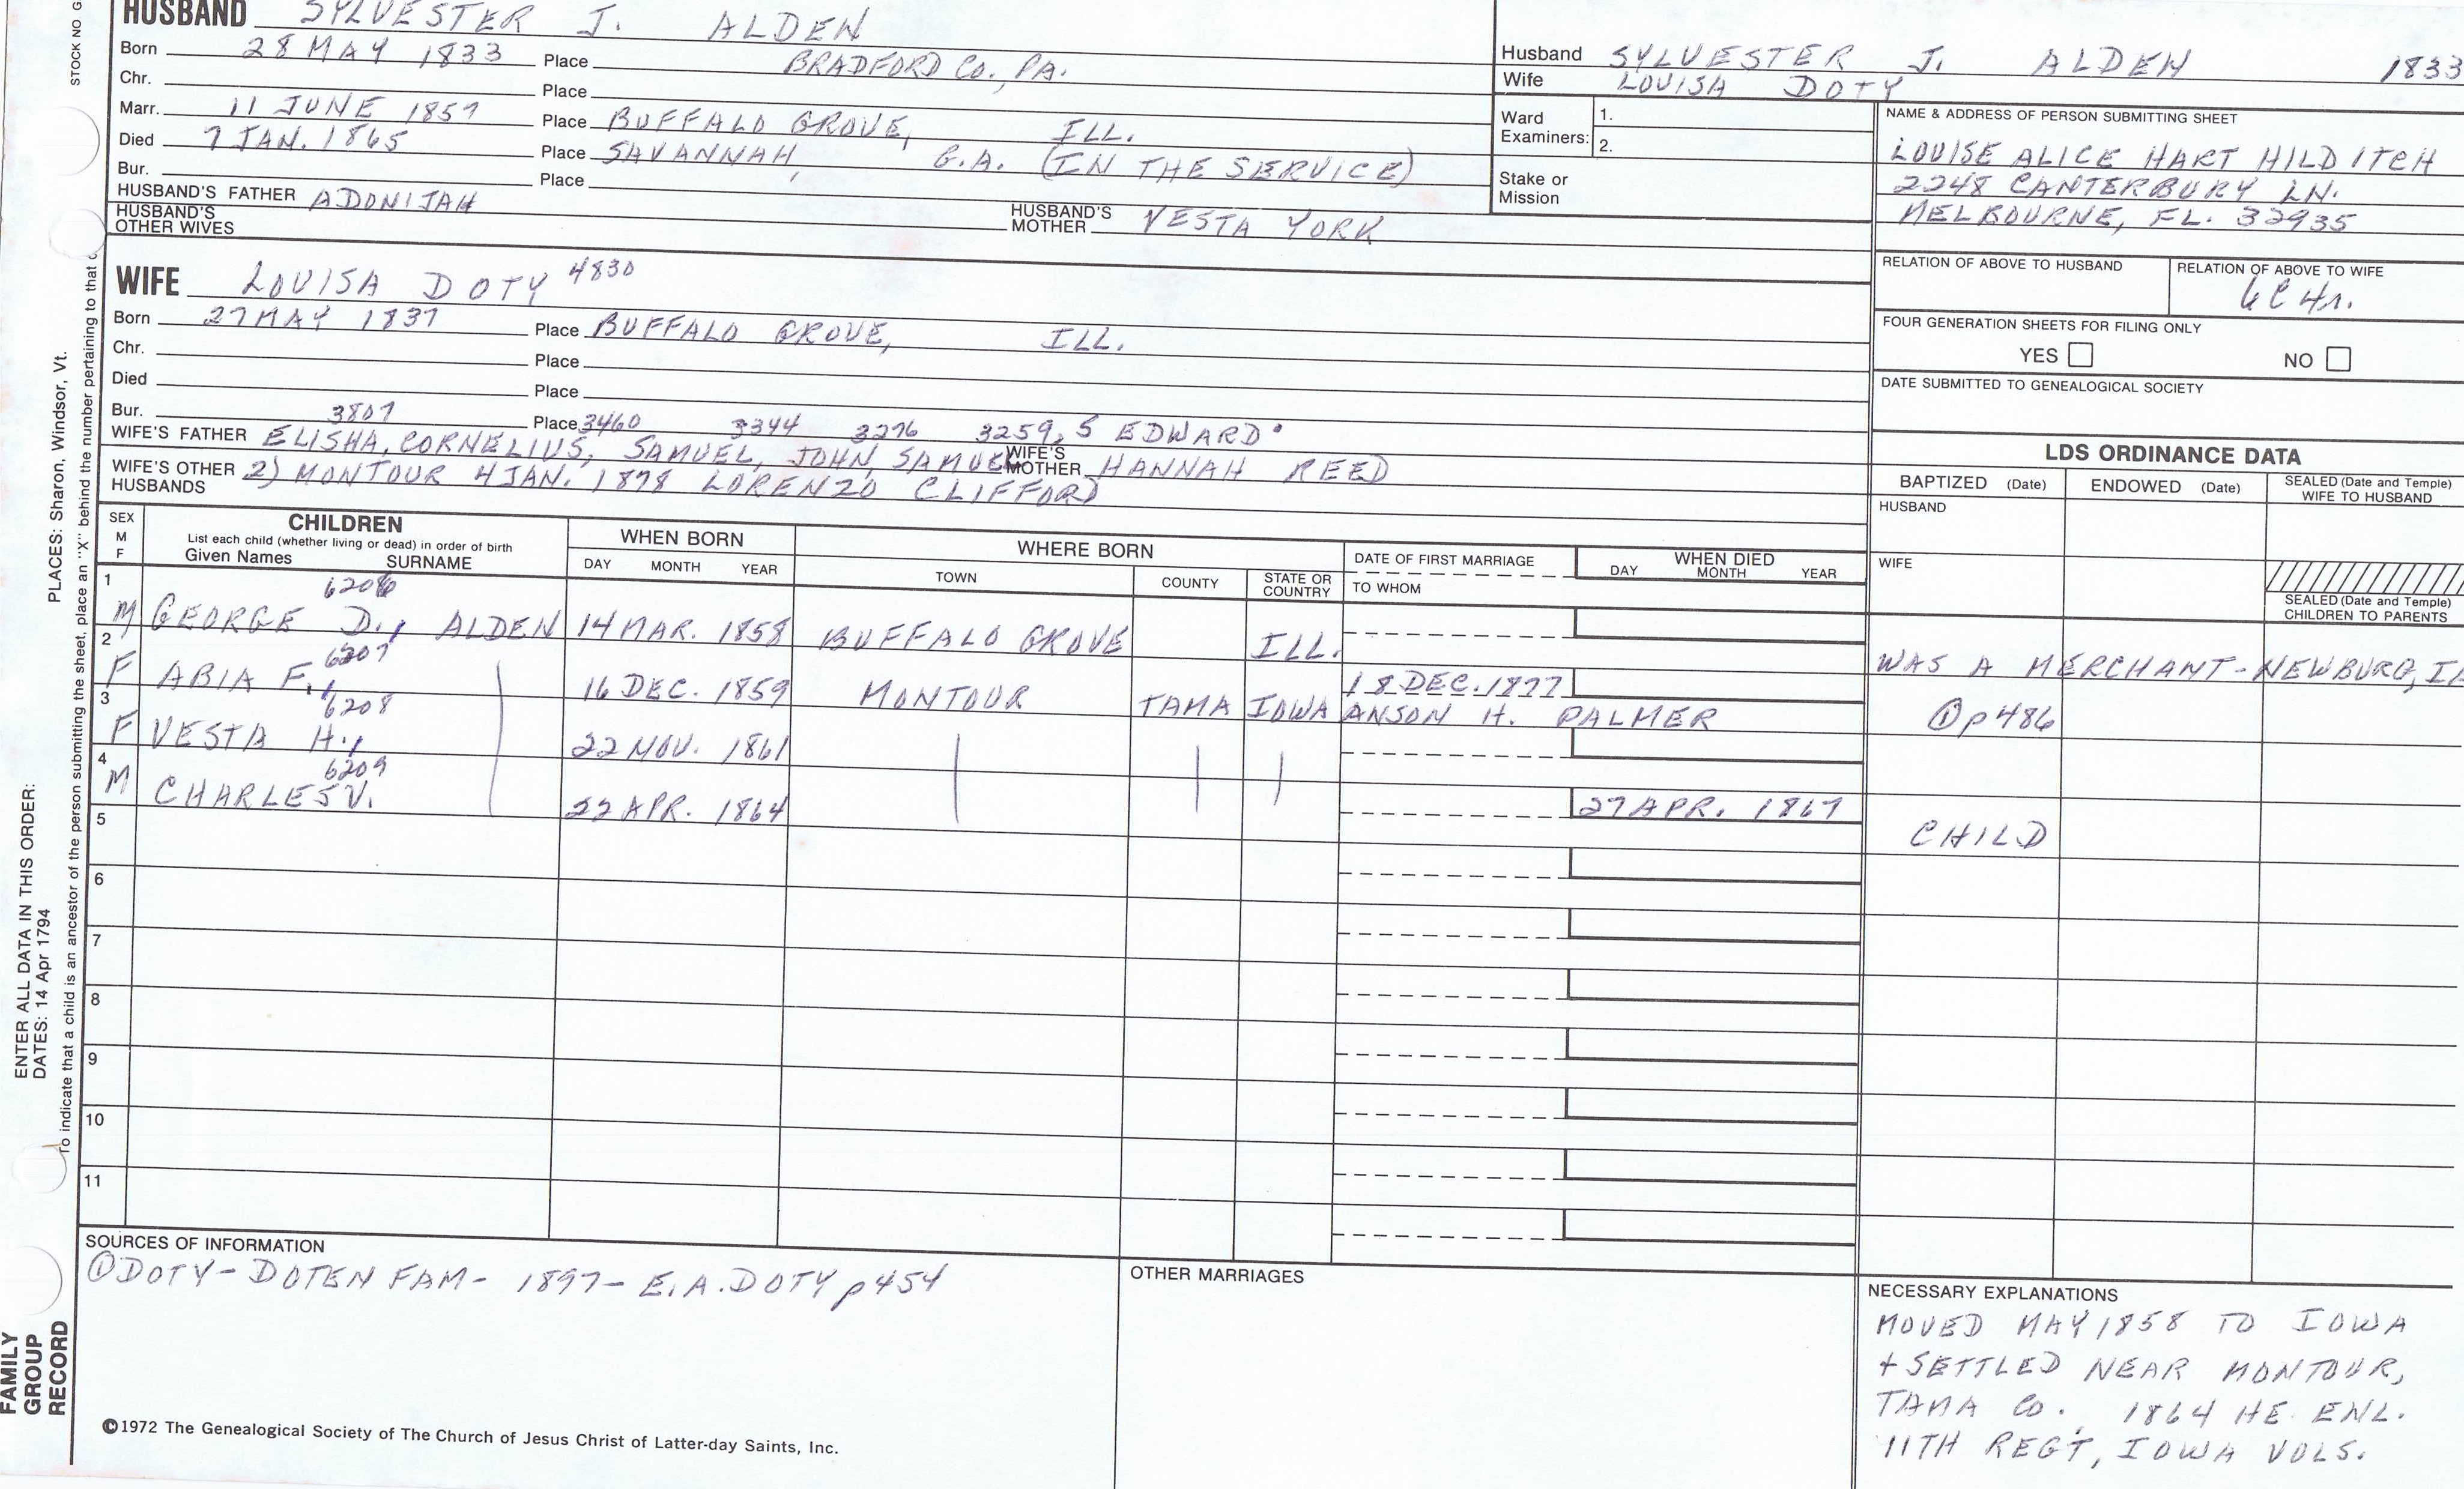 HUSBAND SYLVESTER J. ALDEN
Born 28 MAY 1833 Place BRADFORD CO., PA.
Chr. Place
Marr. 11 JUNE 1857 Place BUFFALO GROVE, ILL.
Died 7 JAN. 1865 Place SAVANNAH, G.A. (IN THE SERVICE)
Bur. Place
HUSBAND'S FATHER ADONIJAH
HUSBAND'S MOTHER VESTA YORK
HUSBAND'S OTHER WIVES
Husband SYLVESTER J. ALDEN 1833
Wife LOUISA DOTY
Ward Examiners: 1.
2.
Stake or Mission
NAME & ADDRESS OF PERSON SUBMITTING SHEET
LOUISE ALICE HART HILDITCH
2248 CANTERBURY LN.
MELBOURNE, FL. 32935
RELATION OF ABOVE TO HUSBAND
RELATION OF ABOVE TO WIFE
6C 4r.
FOUR GENERATION SHEETS FOR FILING ONLY
YES NO
DATE SUBMITTED TO GENEALOGICAL SOCIETY
WIFE LOUISA DOTY 4830
Born 27 MAY 1837 Place BUFFALO GROVE, ILL.
Chr. Place
Died Place
Bur. Place
3807 3460 3344 3276 3259, 5 EDWARD
WIFE'S FATHER ELISHA, CORNELIUS, SAMUEL, JOHN, SAMUEL
WIFE'S MOTHER HANNAH REED
WIFE'S OTHER HUSBANDS 2) MONTOUR 4 JAN. 1878 LORENZO CLIFFORD
LDS ORDINANCE DATA
BAPTIZED (Date) ENDOWED (Date) SEALED (Date and Temple) WIFE TO HUSBAND
HUSBAND
WIFE
SEALED (Date and Temple) CHILDREN TO PARENTS
SEX M F
CHILDREN
List each child (whether living or dead) in order of birth
Given Names SURNAME
WHEN BORN
DAY MONTH YEAR
WHERE BORN
TOWN COUNTY STATE OR COUNTRY
DATE OF FIRST MARRIAGE
TO WHOM
WHEN DIED
DAY MONTH YEAR
1 M GEORGE D., ALDEN 6206 14 MAR. 1858 BUFFALO GROVE ILL. WAS A MERCHANT-NEWBURG, IA
2 F ABIA F., 6207 16 DEC. 1859 MONTOUR TAMA IOWA 18 DEC. 1877 ANSON H. PALMER ① p 486
3 F VESTA H., 6208 22 NOV. 1861
4 M CHARLES V. 6209 22 APR. 1864 27 APR. 1867 CHILD
5
6
7
8
9
10
11
SOURCES OF INFORMATION
① DOTY-DOTEN FAM- 1897- E.A. DOTY p 454
OTHER MARRIAGES
NECESSARY EXPLANATIONS
MOVED MAY 1858 TO IOWA
+ SETTLED NEAR MONTOUR,
TAMA CO. 1864 HE ENL.
11TH REGT, IOWA VOLS.
©1972 The Genealogical Society of The Church of Jesus Christ of Latter-day Saints, Inc.
FAMILY
GROUP
RECORD
ENTER ALL DATA IN THIS ORDER:
DATES: 14 Apr 1794
PLACES: Sharon, Windsor, Vt.
To indicate that a child is an ancestor of the person submitting the sheet, place an "X" behind the number pertaining to that
STOCK NO G